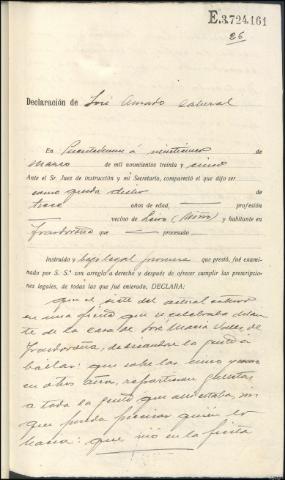 E.3.724,161
26
Declaración de José Amado Cabaral
En Puentedeume a veinticinco de
marzo de mil novecientos treinta y cinco
Ante el Sr. Juez de instrucción y mi Secretario, compareció el que dijo ser
como queda dicho de
trece años de edad, profesión
vecino de (Miño) y habitante en
que procesado
Instruído y bajo legal promesa que prestó, fué examinado
por S. S.ª con arreglo a derecho y después de ofrecer cumplir las prescripciones
legales, de todas las que fué enterado, DECLARA:
que el siete del actual estuvo
en una fiesta que se celebraba delan-
te de la casa de José María de
dedicándose la gente a
bailar: que sabe las cinco y como
en otros años, repartieron
a toda la gente que allí estaba, sin
que pueda precisar quién lo
hacía: que vió en la fiesta